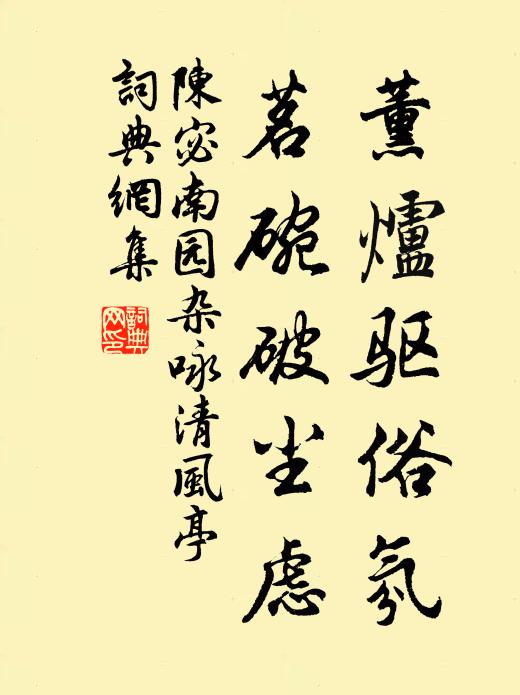 薰爐驱俗氛
茗碗破尘虑
陳宓南园杂咏清風亭
詞典網集
詞典
网印